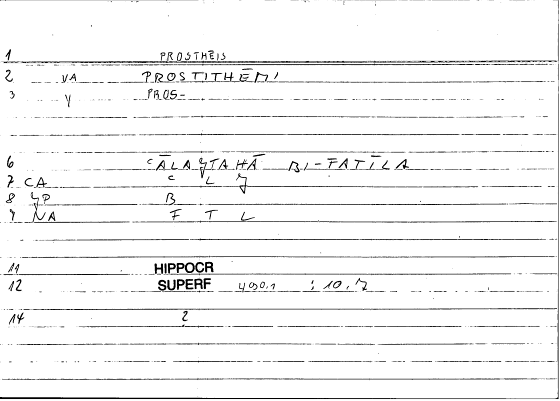 1 PROSTHEIS
2 VA PROSTITHĒMI
3 Y PROS-
6 ᶜĀLAȜTAHĀ BI-FATĪLA
7 CA ᶜ L Ȝ
8 ȜP B
9 NA F T L
11 HIPPOCR
12 SUPERF : 10.
14 2